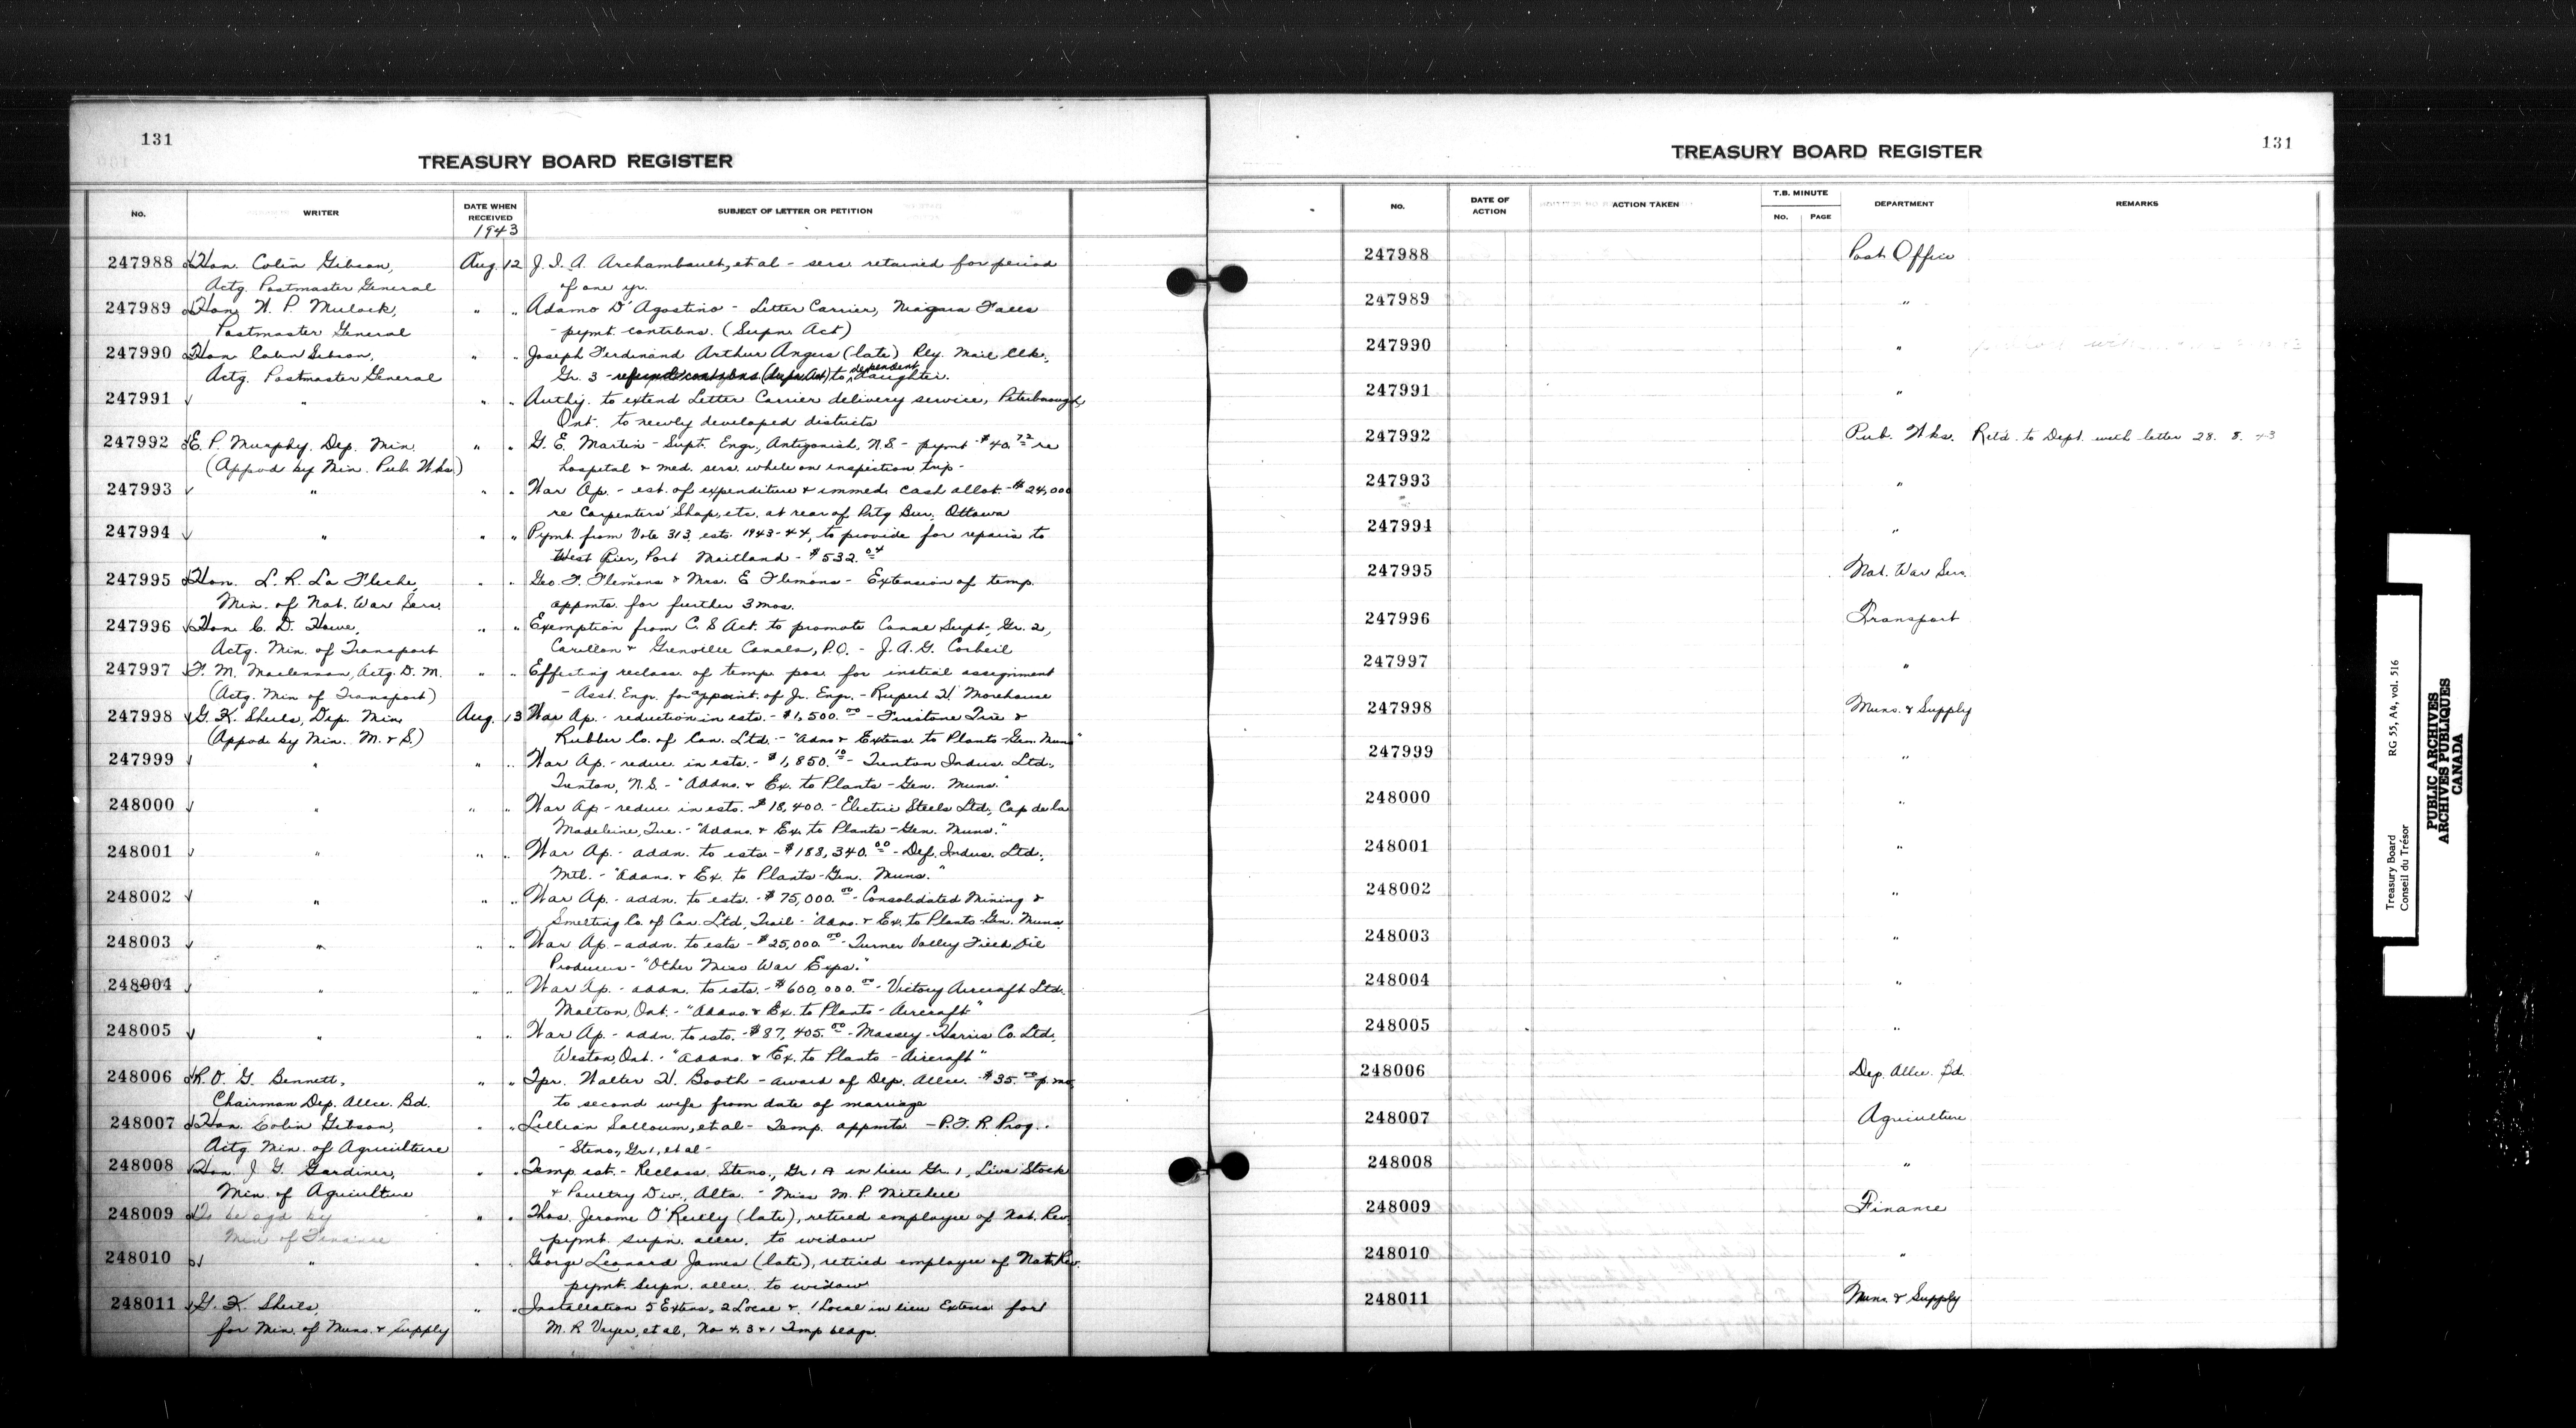 131
TREASURY BOARD REGISTER
No.
WRITER
DATE WHEN RECEIVED
1943
SUBJECT OF LETTER OR PETITION
247988 Hon. Colin Gibson, Aug. 12 J. I. A. Archambault, et al - servs. retained for period
Actg. Postmaster General of one yr.
247989 Hon. W. P. Mulock, " " Adamo D'Agostino - Letter Carrier, Niagara Falls
Postmaster General - pymt. contribns. (Supn. Act)
247990 Hon. Colin Gibson, " " Joseph Ferdinand Arthur Angus (late) Rly. Mail Clk.,
Actg. Postmaster General Gr. 3 - refund contribns. (Supn. Act) to dependent daughter.
247991 " " " Authy. to extend Letter Carrier delivery service, Peterborough,
Ont. to newly developed districts
247992 E. P. Murphy, Dep. Min. " " G. E. Martin - Supt. Engr., Antigonish, N.S. - pymt. $40.72 re
(Appvd by Min. Pub. Wks.) hospital & med. servs. while on inspection trip -
247993 " " " War Ap. - est. of expenditure & immed. cash allot. - $24,000
re Carpenters' Shop, etc. at rear of Prtg Bur. Ottawa
247994 " " " Pymt. from Vote 313, ests. 1943-44, to provide for repairs to
West Pier, Port Maitland - $532.04
247995 Hon. L. R. La Fleche, " " Geo. F. Flemons & Mrs. E. Flemons - Extension of temp.
Min. of Nat. War Servs. appmts. for further 3 mos.
247996 Hon. C. D. Howe, " " Exemption from C. S. Act. to promote Canal Supt., Gr. 2,
Actg. Min. of Transport Carillon & Grenville Canals, P.Q. - J. A. G. Corbeil
247997 F. M. Maclennan, Actg. D. M. " " Effecting reclass. of temp. pos. for initial assignment
(Actg. Min of Transport) - Asst. Engr. for appoint. of Jr. Engr. - Rupert W. Morehouse
247998 G. K. Sheils, Dep. Min. Aug. 13 War Ap. - reduction in ests. - $1,500.00 - Firestone Tire &
(Appvd by Min. M. & S.) Rubber Co. of Can. Ltd. - "Adns. & Extens. to Plants - Gen. Muns"
247999 " " " War Ap. - reduc. in ests. - $1,850.10 - Trenton Indus. Ltd.,
Trenton, N.S. - "Addns. & Ex. to Plants - Gen. Muns."
248000 " " " War Ap - reduc. in ests. - $18,400. - Electric Steels Ltd., Cap de la
Madeleine, Que. - "Addns. & Ex. to Plants - Gen. Muns."
248001 " " " War Ap. - addn. to ests. - $188,340.00 - Def. Indus. Ltd.,
Mtl. - "Addns. & Ex. to Plants - Gen. Muns."
248002 " " " War Ap. - addn. to ests. - $75,000.00 - Consolidated Mining &
Smelting Co. of Can. Ltd, Trail - "Adns. & Ex. to Plants - Gen. Muns.
248003 " " " War Ap. - addn. to ests - $25,000.00 - Turner Valley Field Oil
Producers - "Other Misc War Exps."
248004 " " " War Ap. - addn. to ests. - $600,000.00 - Victory Aircraft Ltd.
Malton, Ont. - "Addns. & Ex. to Plants - Aircraft"
248005 " " " War Ap. - addn. to ests. - $87,405.00 - Massey-Harris Co. Ltd.,
Weston, Ont. - "Addns. & Ex. to Plants - Aircraft"
248006 R. O. G. Bennett, " " Tpr. Walter W. Booth - award of Dep. Allce. - $35.00 p. mo.
Chairman Dep. Allce. Bd. to second wife from date of marriage
248007 Hon. Colin Gibson, " " Lillian Salloum, et al - Temp. appmts. - P.F.R. Prog.
Actg Min. of Agriculture - Steno., Gr 1, et al -
248008 Hon. J. G. Gardiner, " " Temp. est. - Reclass. Steno., Gr. 1 A in lieu Gr. 1, Live Stock
Min. of Agriculture & Poultry Div., Alta. - Miss M. P. Mitchell
248009 To be sgd by " " Thos. Jerome O'Reilly (late), retired employee of Nat. Rev.
Min of Finance pymt. supn. allce. to widow
248010 " " " George Leonard James (late), retired employee of Nat. Rev.
pymt. supn. allce. to widow
248011 G. K. Sheils, " " Installation 5 Extens, 2 Local & 1 Local in lieu Extens for
for Min. of Muns. & Supply M. R. et al, No 4, 3 & 1 Temp bldgs.
131
TREASURY BOARD REGISTER
No.
DATE OF ACTION
ACTION TAKEN
T.B. MINUTE
No. PAGE
DEPARTMENT
REMARKS
247988 Post Office
247989 "
247990 "
247991 "
247992 Pub. Wks. Retd. to Dept. with letter 28. 8. 43
247993 "
247994 "
247995 Nat. War Servs.
247996 Transport
247997 "
247998 Muns. & Supply
247999 "
248000 "
248001 "
248002 "
248003 "
248004 "
248005 "
248006 Dep. Allce. Bd.
248007 Agriculture
248008 "
248009 Finance
248010 "
248011 Muns. & Supply
Treasury Board RG 55, A4, vol. 516
Conseil du Trésor
PUBLIC ARCHIVES
ARCHIVES PUBLIQUES
CANADA